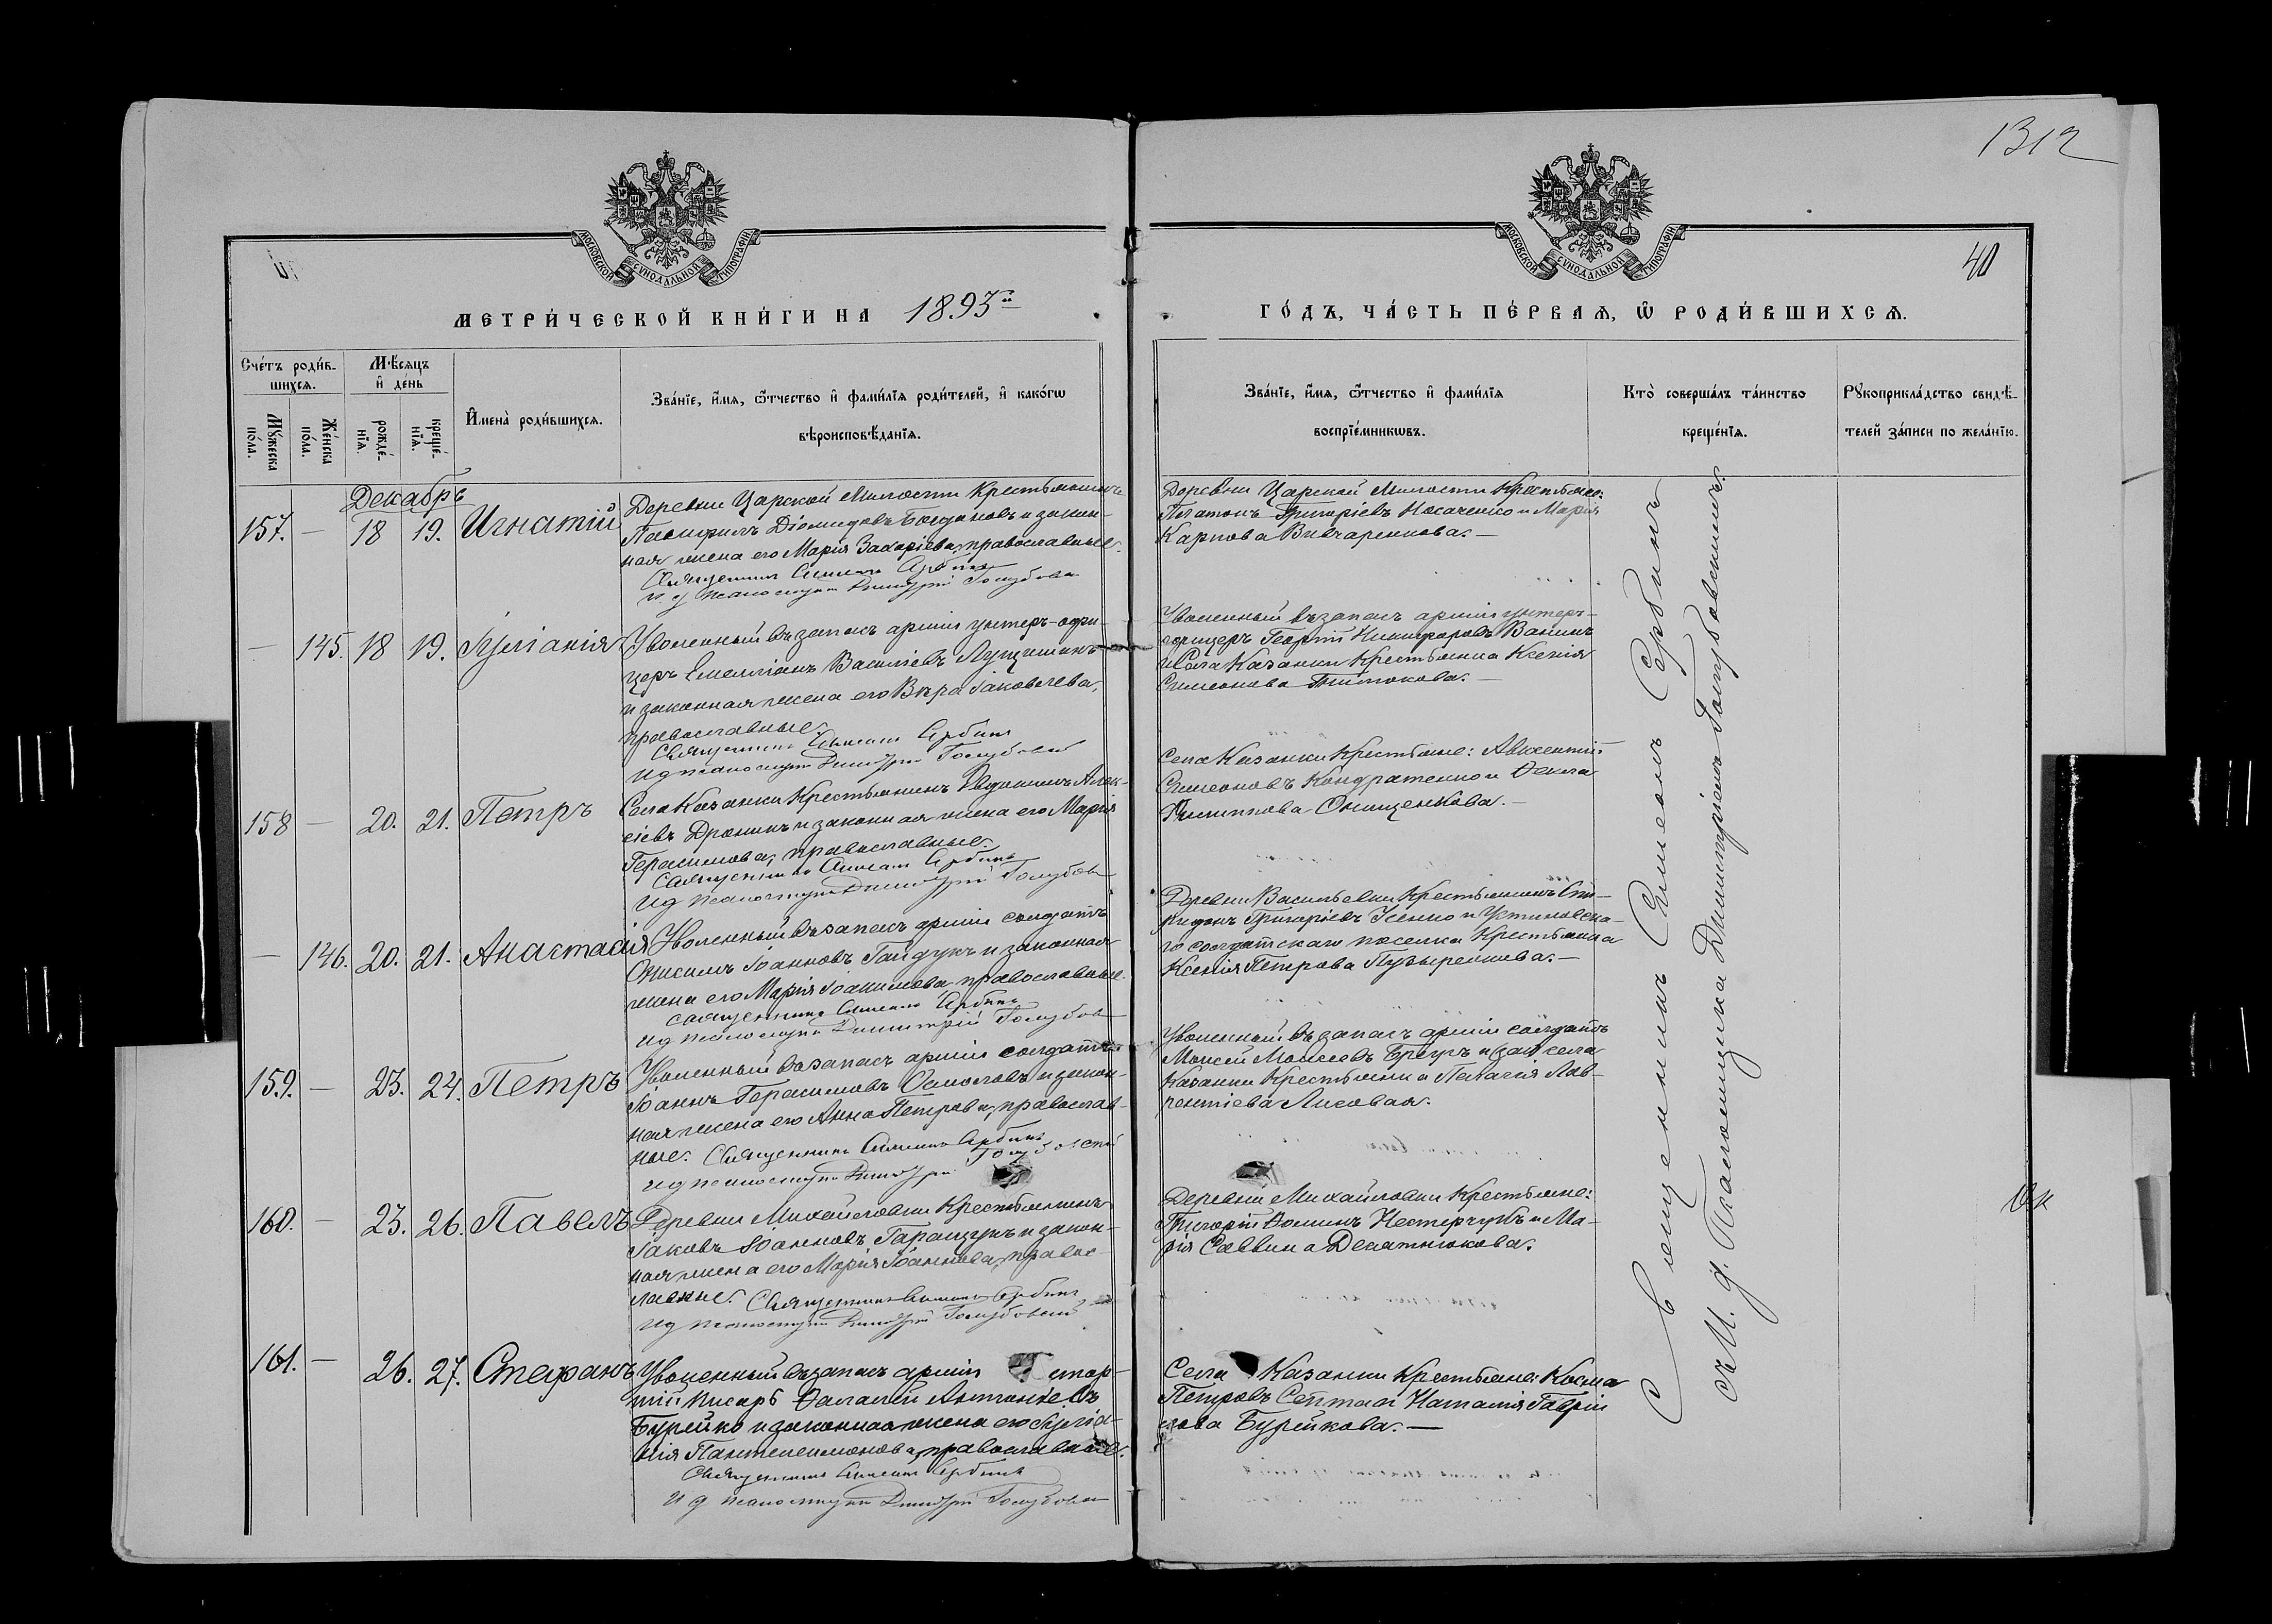 1312
40
МОСКОВСКОЙ СѴНОДАЛЬНОЙ ТИПОГРАФІИ
МОСКОВСКОЙ СѴНОДАЛЬНОЙ ТИПОГРАФІИ
МЕТРИ́ЧЕСКОЙ КНИ́ГИ НА 1893й
ГО́ДЪ, ЧА́СТЬ ПЕ́РВАѦ, Ѡ РОДИ́ВШИХСѦ.
Сче́тъ роди́в-
шихсѧ.
Мꙋ́жеска по́ла.
Же́нска по́ла.
Мѣ́сяцъ и҆ де́нь
рожде́-
нїѧ.
креще́-
нїѧ.
И҆мена̀ роди́вшихсѧ.
Зва́нїе, и҆́мѧ, ѻ҆́тчество и҆ фами́лїѧ роди́телей, и҆ како́гѡ
вѣроисповѣ́данїѧ.
Зва́нїе, и҆́мѧ, ѻ҆́тчество и҆ фами́лїѧ
воспрїе́мникѡвъ.
Кто̀ соверша́лъ та́инство
креще́нїѧ.
Рꙋкоприкла́дство свидѣ́-
телей за́писи по жела́нїю.
Декабрь
157. — 18 19. Игнатій
Деревни Царской Милости Крестьянинъ
Діомидовъ Богдановъ и закон-
ная жена его Марія Захаріева, православные.
Священникъ Симеонъ Сербинъ
И д псаломщика Димитрій Голубовскій
Деревни Царской Милости Крестьяне:
Платонъ Григоріевъ Носаченко и Марія
Карпова Вивчаренкова. —
— 145. 18 19. Іуліанія
Уволенный въ запасъ арміи унтеръ-офи-
церъ Емеліанъ Василіевъ Лущикинъ
и законная жена его Вѣра Іаковлева,
православные.
Священникъ Симеонъ Сербинъ
И д псаломщика Димитрій Голубовскій
Уволенный въ запасъ арміи унтеръ-
офицеръ Георгій Никифоровъ Ванинъ
и Села Казанки Крестьянка Ксенія
Симеонова Тимокова. —
158 — 20. 21. Петръ
Села Казанки Крестьянинъ Евдокимъ Алек-
сіевъ Дронинъ и законная жена его Марія
Герасимова, православные.
Священникъ Симеонъ Сербинъ
И д псаломщика Димитрій Голубов
Села Казанки Крестьяне: Авксентій
Симеоновъ Кондратенко и Ѳекла
Филиппова Онищенкова. —
— 146. 20. 21. Анастасія
Уволенный въ запасъ арміи солдатъ
Онисимъ Іоанновъ Гайдукъ и законная
жена его Марія Іоакимова, православные.
Священникъ Симеонъ Сербинъ
И д псаломщика Димитрій Голубов
Деревни Васильевки Крестьянинъ Спи-
ридонъ Григоріевъ Усенко и Устиновска-
го солдатскаго поселка Крестьянка
Ксенія Петрова Пузырейкова. —
159. — 23. 24. Петръ
Уволенный въ запасъ арміи солдатъ
Іоаннъ Герасимовъ Осмоловъ и закон-
ная жена его Анна Петрова, православ-
ные. Священникъ Симеонъ Сербинъ
И д псаломщика Димитрій Голубовскій
Уволенный въ запасъ арміи солдатъ
Моисей Моисеевъ и села
Казанки Крестьянка Пелагія Лав-
рентіева Лисовая.
160. — 23. 26. Павелъ
Деревни Михайловки Крестьянинъ
Іаковъ Іоанновъ Гаращукъ и закон-
ная жена его Марія Іоаннова, правос-
лавные. Священникъ Симеонъ Сербинъ
И д псаломщика Димитрій Голубовскій
Деревни Михайловки Крестьяне:
Григорій Ѳоминъ Нестерчукъ и Ма-
рія Саввина Десятнюкова.
161. — 26. 27. Стефанъ
Уволенный въ запасъ арміи стар-
шій писарь Ѳалалей Антоніевъ
Бурейко и законная жена его Іуліа-
нія Пантелеимонова, православные.
Священникъ Симеонъ Сербинъ
И д псаломщика Димитрій Голубовскій
Села Казанки Крестьяне: Косма
Петровъ и Наталія Гаврiи
лова Бурейкова. —
Священникъ Симеонъ Сербинъ
съ И. д. Псаломщика Димитріемъ Голубовскимъ.